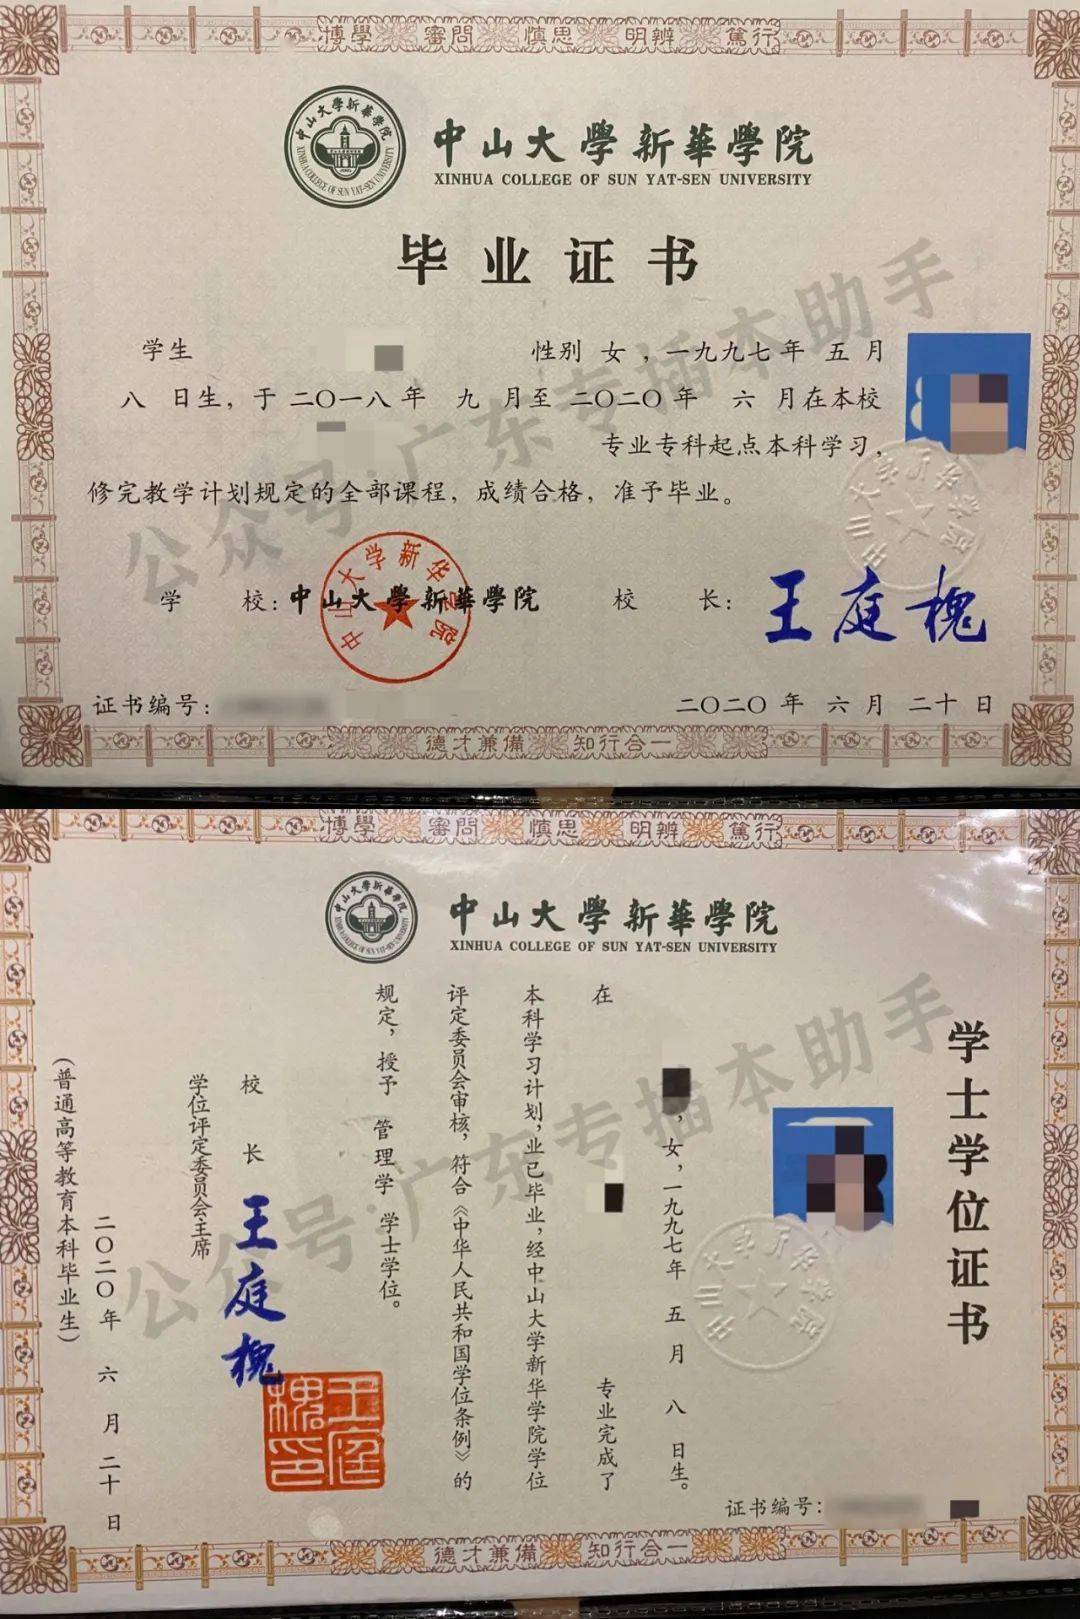 博學 審問 慎思 明辨 篤行
中山大學新華學院
XINHUA COLLEGE OF SUN YAT-SEN UNIVERSITY
中山大學新華學院
XINHUA COLLEGE OF SUN YAT-SEN UNIVERSITY
毕业证书
学生 性别 女 ,一九九七年 五 月
八 日生, 于 二〇一八年 九 月至 二〇二〇年 六 月在本校
专业专科起点本科学习,
修完教学计划规定的全部课程, 成绩合格, 准予毕业。
学 校: 中山大學新華學院
中山大学新华学院
校 长: 王庭槐
中山大学新华学院
证书编号:
二〇二〇 年 六 月 二十 日
德才兼備 知行合一
公众号:广东专插本助手
博學 審問 慎思 明辨 篤行
中山大學新華學院
XINHUA COLLEGE OF SUN YAT-SEN UNIVERSITY
中山大學新華學院
XINHUA COLLEGE OF SUN YAT-SEN UNIVERSITY
学士学位证书
,女,一九九七年 五 月 八 日生。
在 专业完成了
本科学习计划,业已毕业,经中山大学新华学院学位
评定委员会审核,符合《中华人民共和国学位条例》的
规定,授予 管理学 学士学位。
校 长 王庭槐
学位评定委员会主席
王庭槐印
中山大学新华学院
证书编号:
二〇二〇年 六 月 二十 日
(普通高等教育本科毕业生)
德才兼備 知行合一
公众号:广东专插本助手